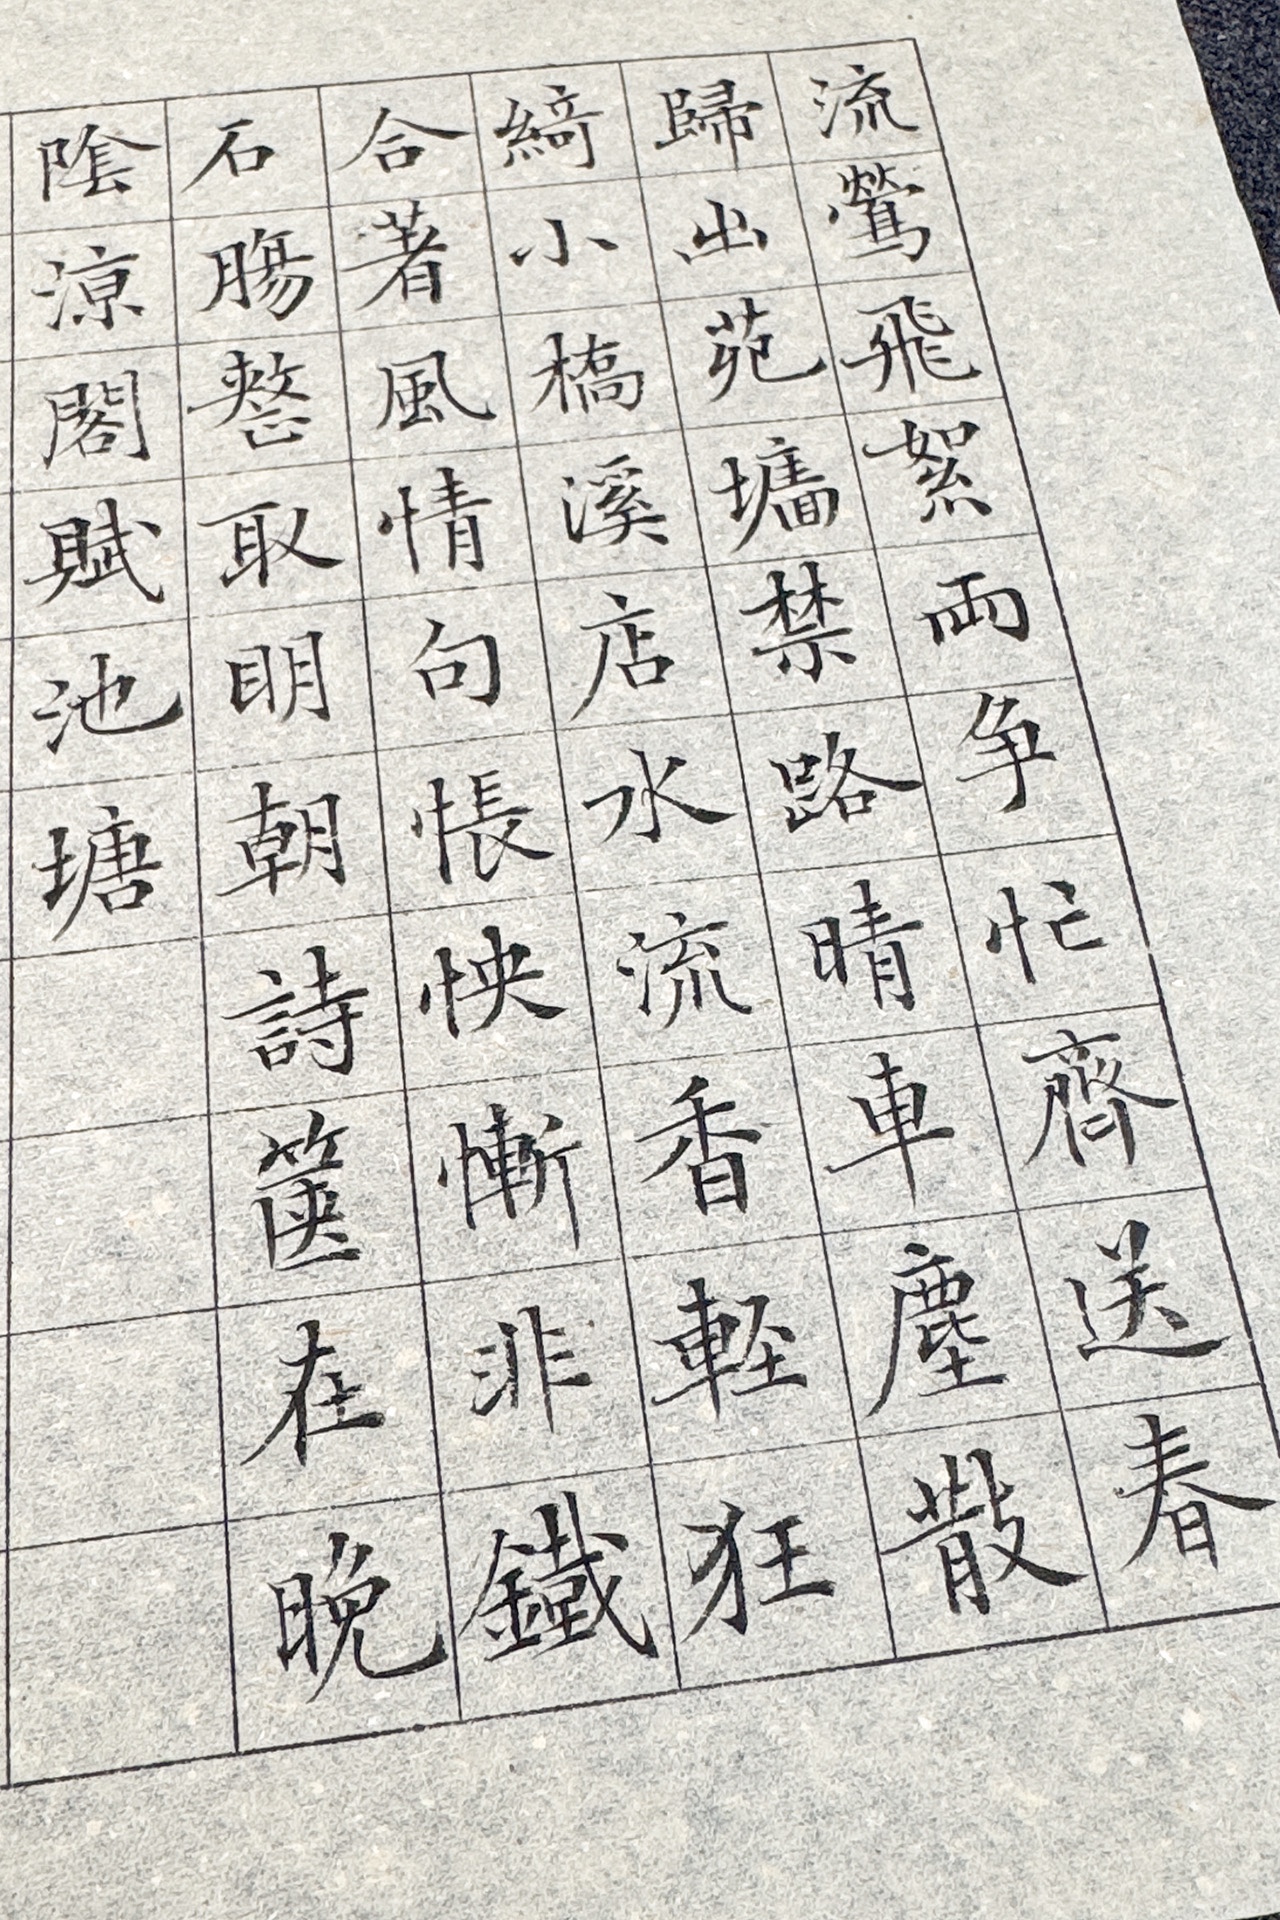 流鶯飛絮兩争忙齊送春
歸出苑墻禁路晴車塵散
綺小橋溪店水流香輕狂
合著風情句悵怏慚非鐵
石腸整取明朝詩篋在晚
陰涼閣賦池塘